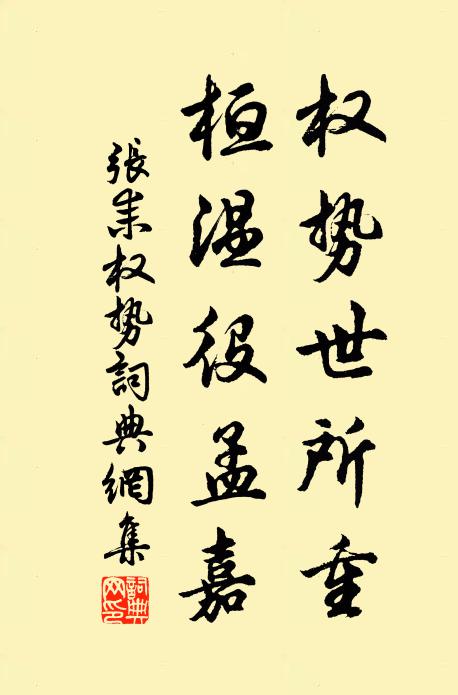 权势世所重
桓温役孟嘉
張耒权势詞典網集
詞典网印